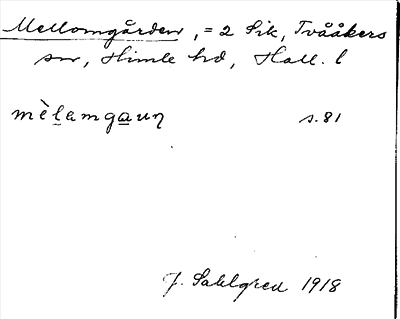 Mellomgården, = 2 Sik, Tvååkers
sn, Himle hd, Hall. l
mèlamgaun s. 81
J. Sahlgren 1918